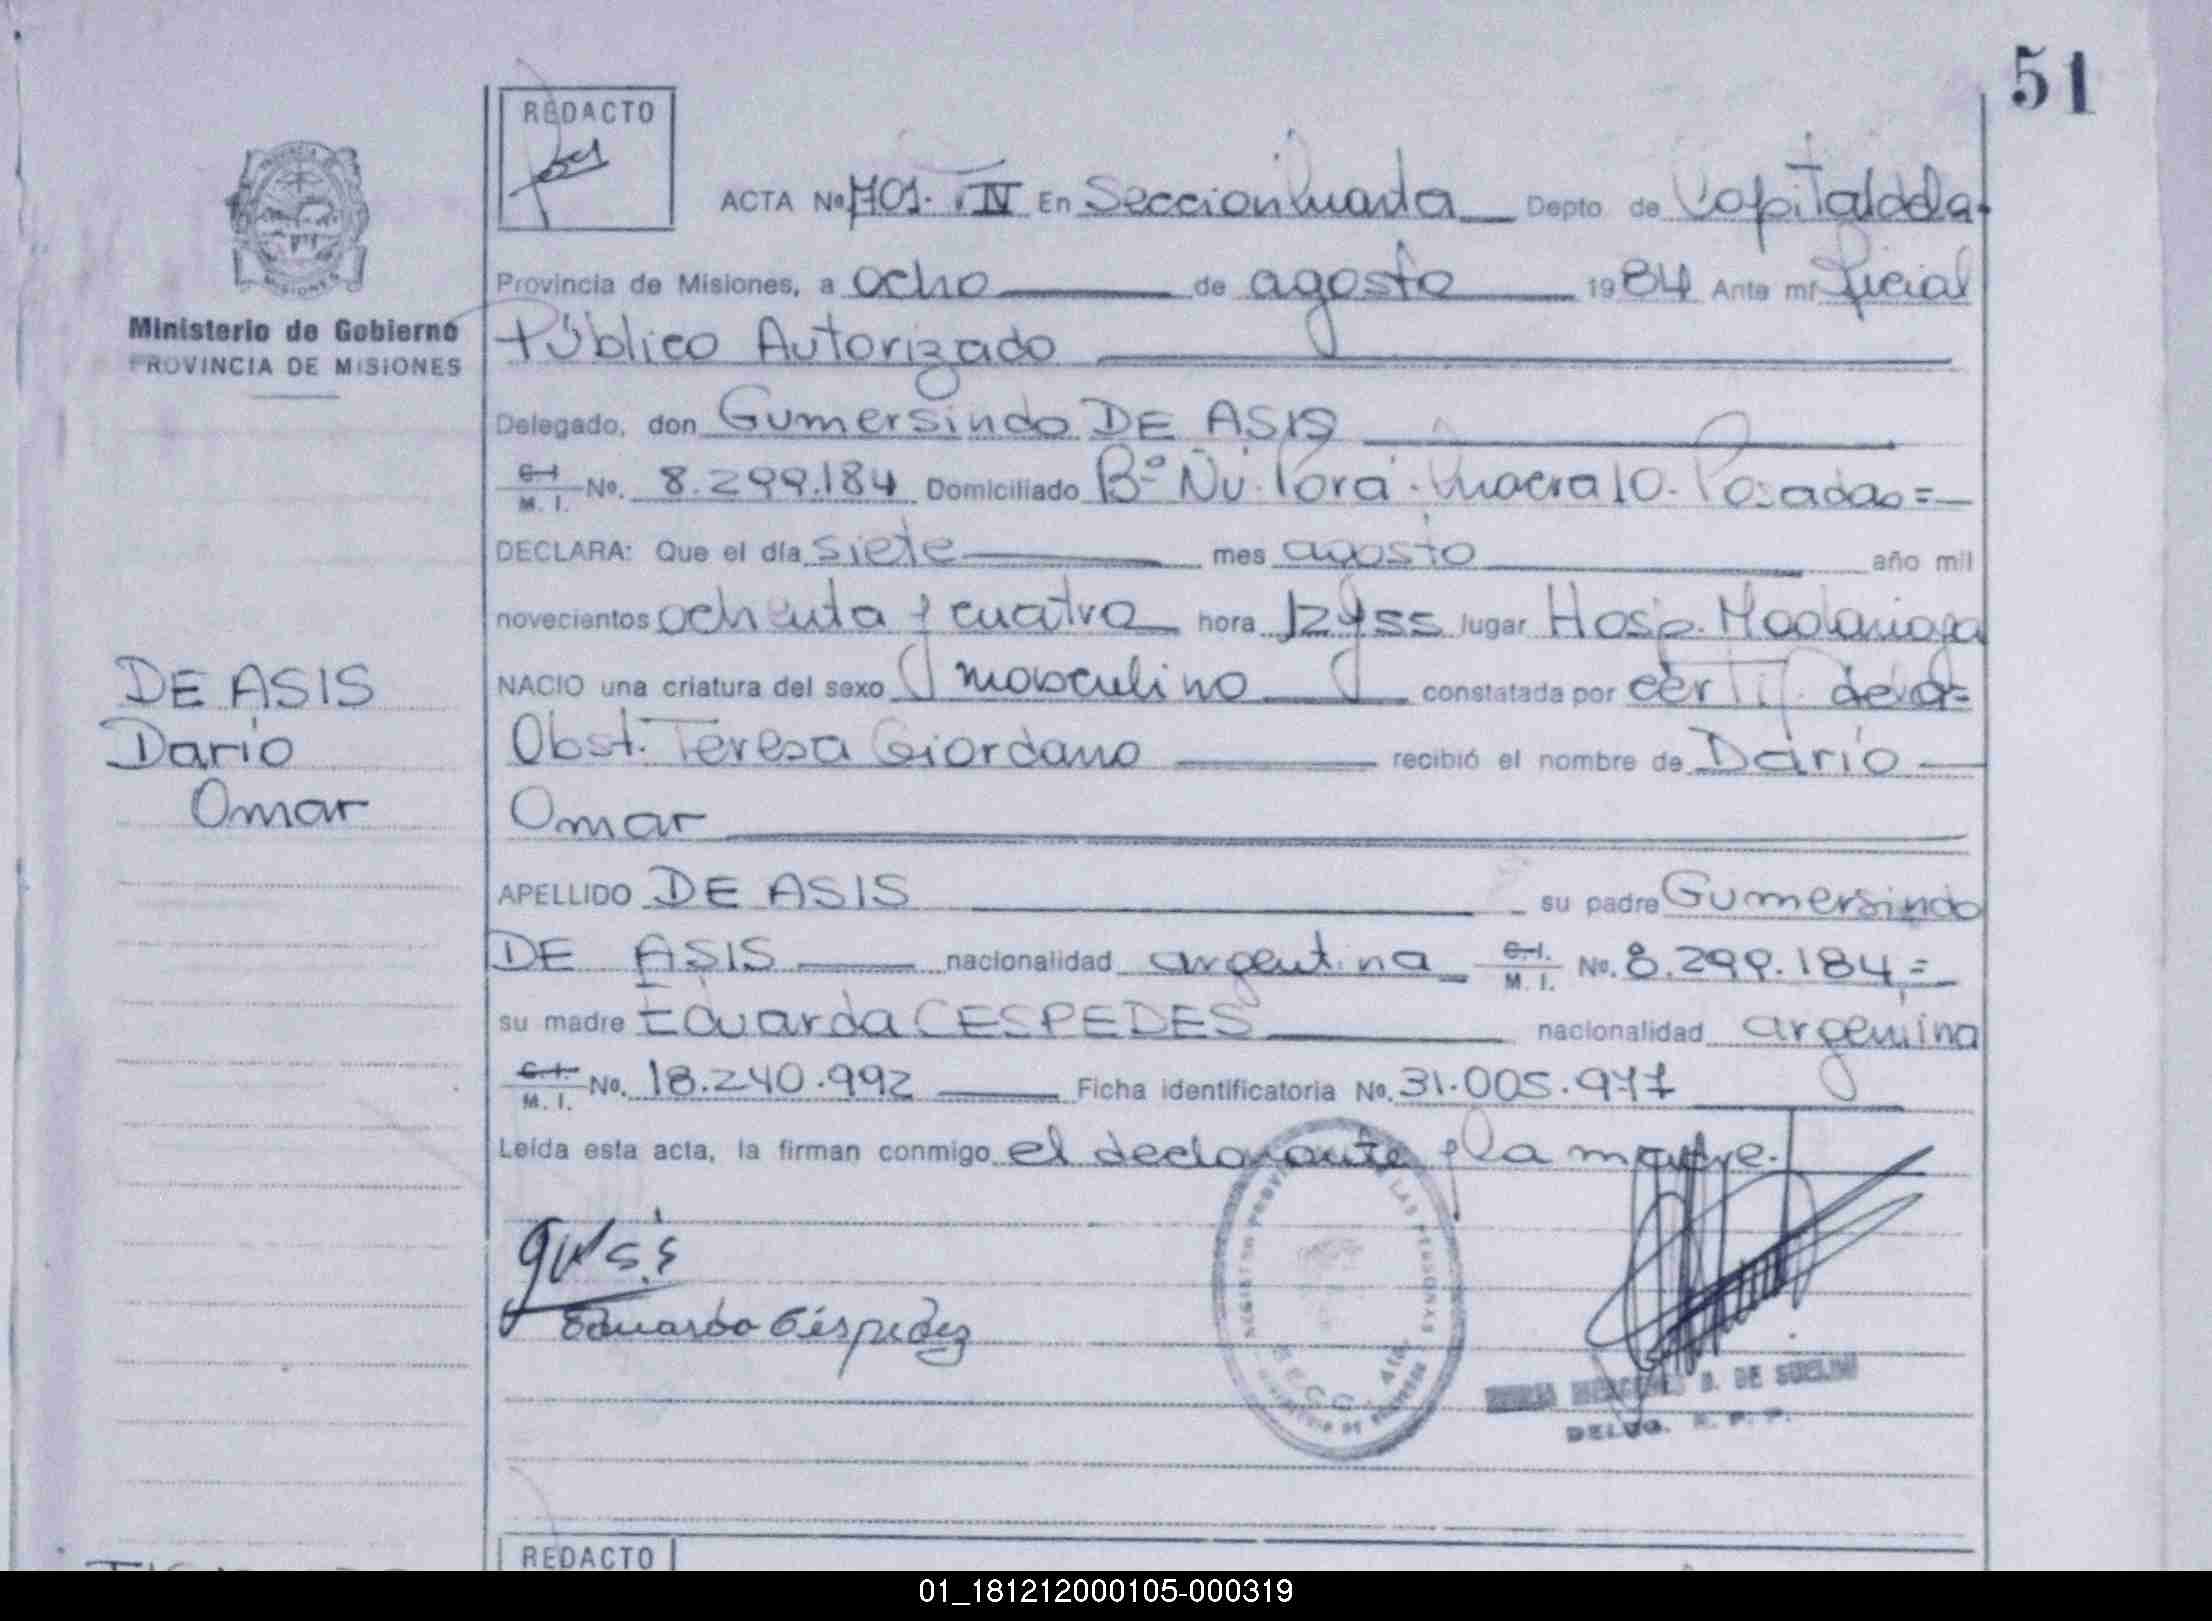 51
REDACTO
ACTA Nº 701. IV En Seccion Cuarta Depto de Capital de la
Provincia de Misiones, a ocho de agosto 1984 Ante mí Oficial
Ministerio de Gobierno
PROVINCIA DE MISIONES
Público Autorizado
Delegado, don Gumersindo DE ASIS
C.I. M. I. No. 8.299.184 Domiciliado Bº Ñu Porá. Chacra 10. Posadas =
DECLARA: Que el día siete mes agosto año mil
novecientos ochenta y cuatro hora 12 y 55 lugar Hosp. Madariaga
NACIO una criatura del sexo masculino constatada por certif. de la =
Obst. Teresa Giordano recibió el nombre de Darío
Omar
DE ASIS
Darío
Omar
APELLIDO DE ASIS su padre Gumersindo
DE ASIS nacionalidad argentina C.I. M. I. No. 8.299.184 =
su madre Eduarda CESPEDES nacionalidad argentina
C.I. M. I. No. 18.240.992 Ficha identificatoria No. 31.005.977
Leída esta acta, la firman conmigo el declarante y la madre.
Eduarda Céspedez
B. DE SUELDO
DELEG. R. P. P.
REDACTO
01_181212000105-000319